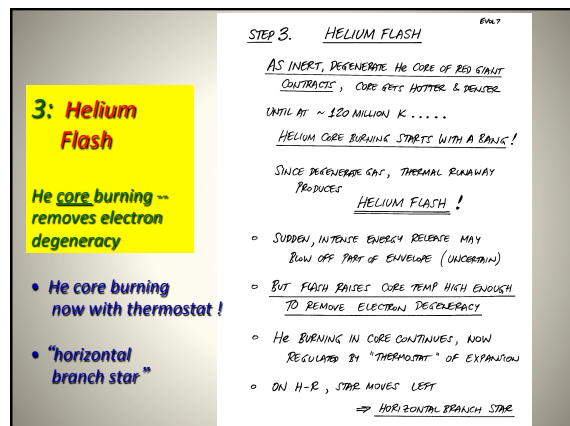 3: Helium
Flash
He core burning --
removes electron
degeneracy
• He core burning
now with thermostat !
• "horizontal
branch star"
EVOL 7
STEP 3. HELIUM FLASH
AS INERT, DEGENERATE He CORE OF RED GIANT
CONTRACTS, CORE GETS HOTTER & DENSER
UNTIL AT ~ 120 MILLION K .....
HELIUM CORE BURNING STARTS WITH A BANG!
SINCE DEGENERATE GAS, THERMAL RUNAWAY
PRODUCES
HELIUM FLASH !
o SUDDEN, INTENSE ENERGY RELEASE MAY
BLOW OFF PART OF ENVELOPE (UNCERTAIN)
o BUT FLASH RAISES CORE TEMP HIGH ENOUGH
TO REMOVE ELECTRON DEGENERACY
o He BURNING IN CORE CONTINUES, NOW
REGULATED BY "THERMOSTAT" OF EXPANSION
o ON H-R, STAR MOVES LEFT
⇒ HORIZONTAL BRANCH STAR